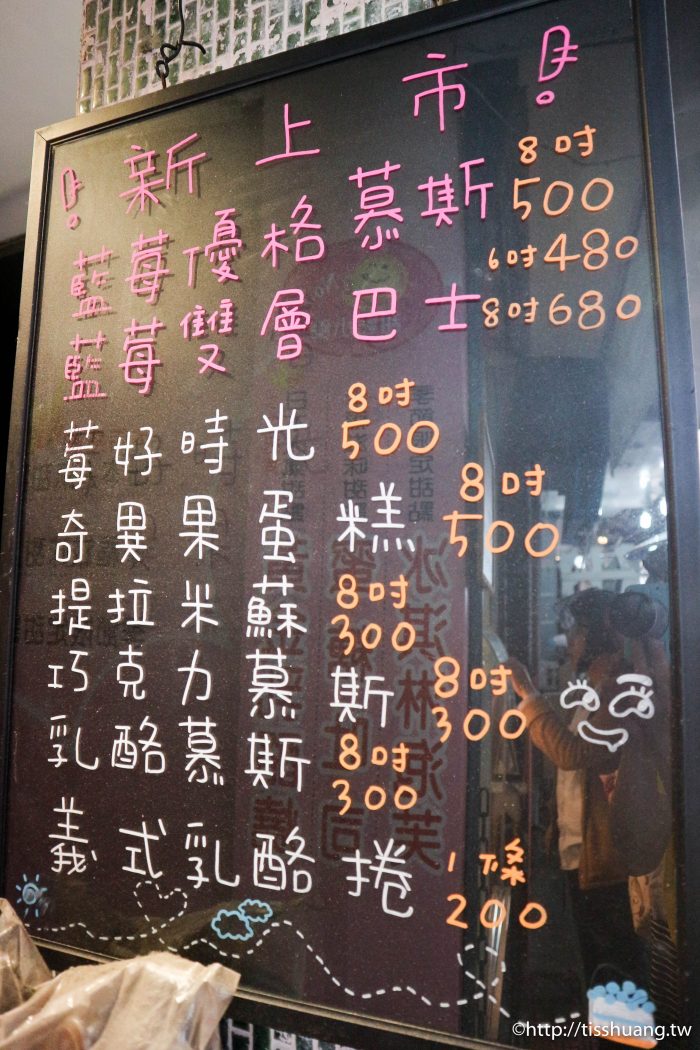 ! 新上市 !
藍莓優格慕斯 8吋 500
藍莓雙層巴士 6吋480 8吋680
莓好時光 8吋 500
奇異果蛋糕 8吋 500
提拉米蘇 8吋 300
巧克力慕斯 8吋 300
乳酪慕斯 8吋 300
義式乳酪捲 1條 200
冰淇淋泡芙
©http://tisshuang.tw